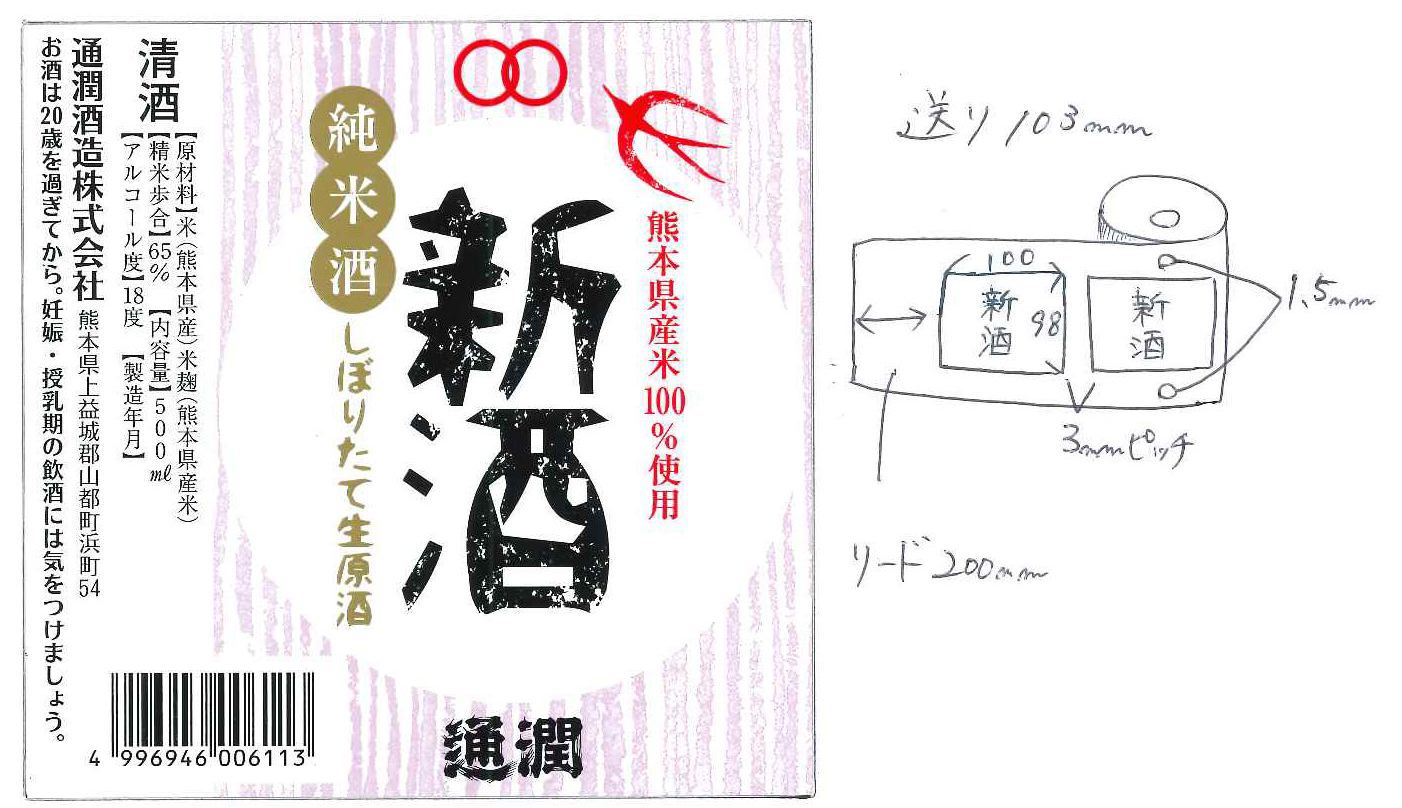 熊本県産米100%使用
新酒
純米酒
しぼりたて生原酒
通潤
清酒
【原材料】米(熊本県産)米麹(熊本県産米)
【精米歩合】65% 【内容量】500ml
【アルコール度】18度 【製造年月】
通潤酒造株式会社 熊本県上益城郡山都町浜町54
お酒は20歳を過ぎてから。妊娠・授乳期の飲酒には気をつけましょう。
4 996946 006113
送り103mm
100
新酒
98
新酒
1.5mm
3mmピッチ
リード200mm